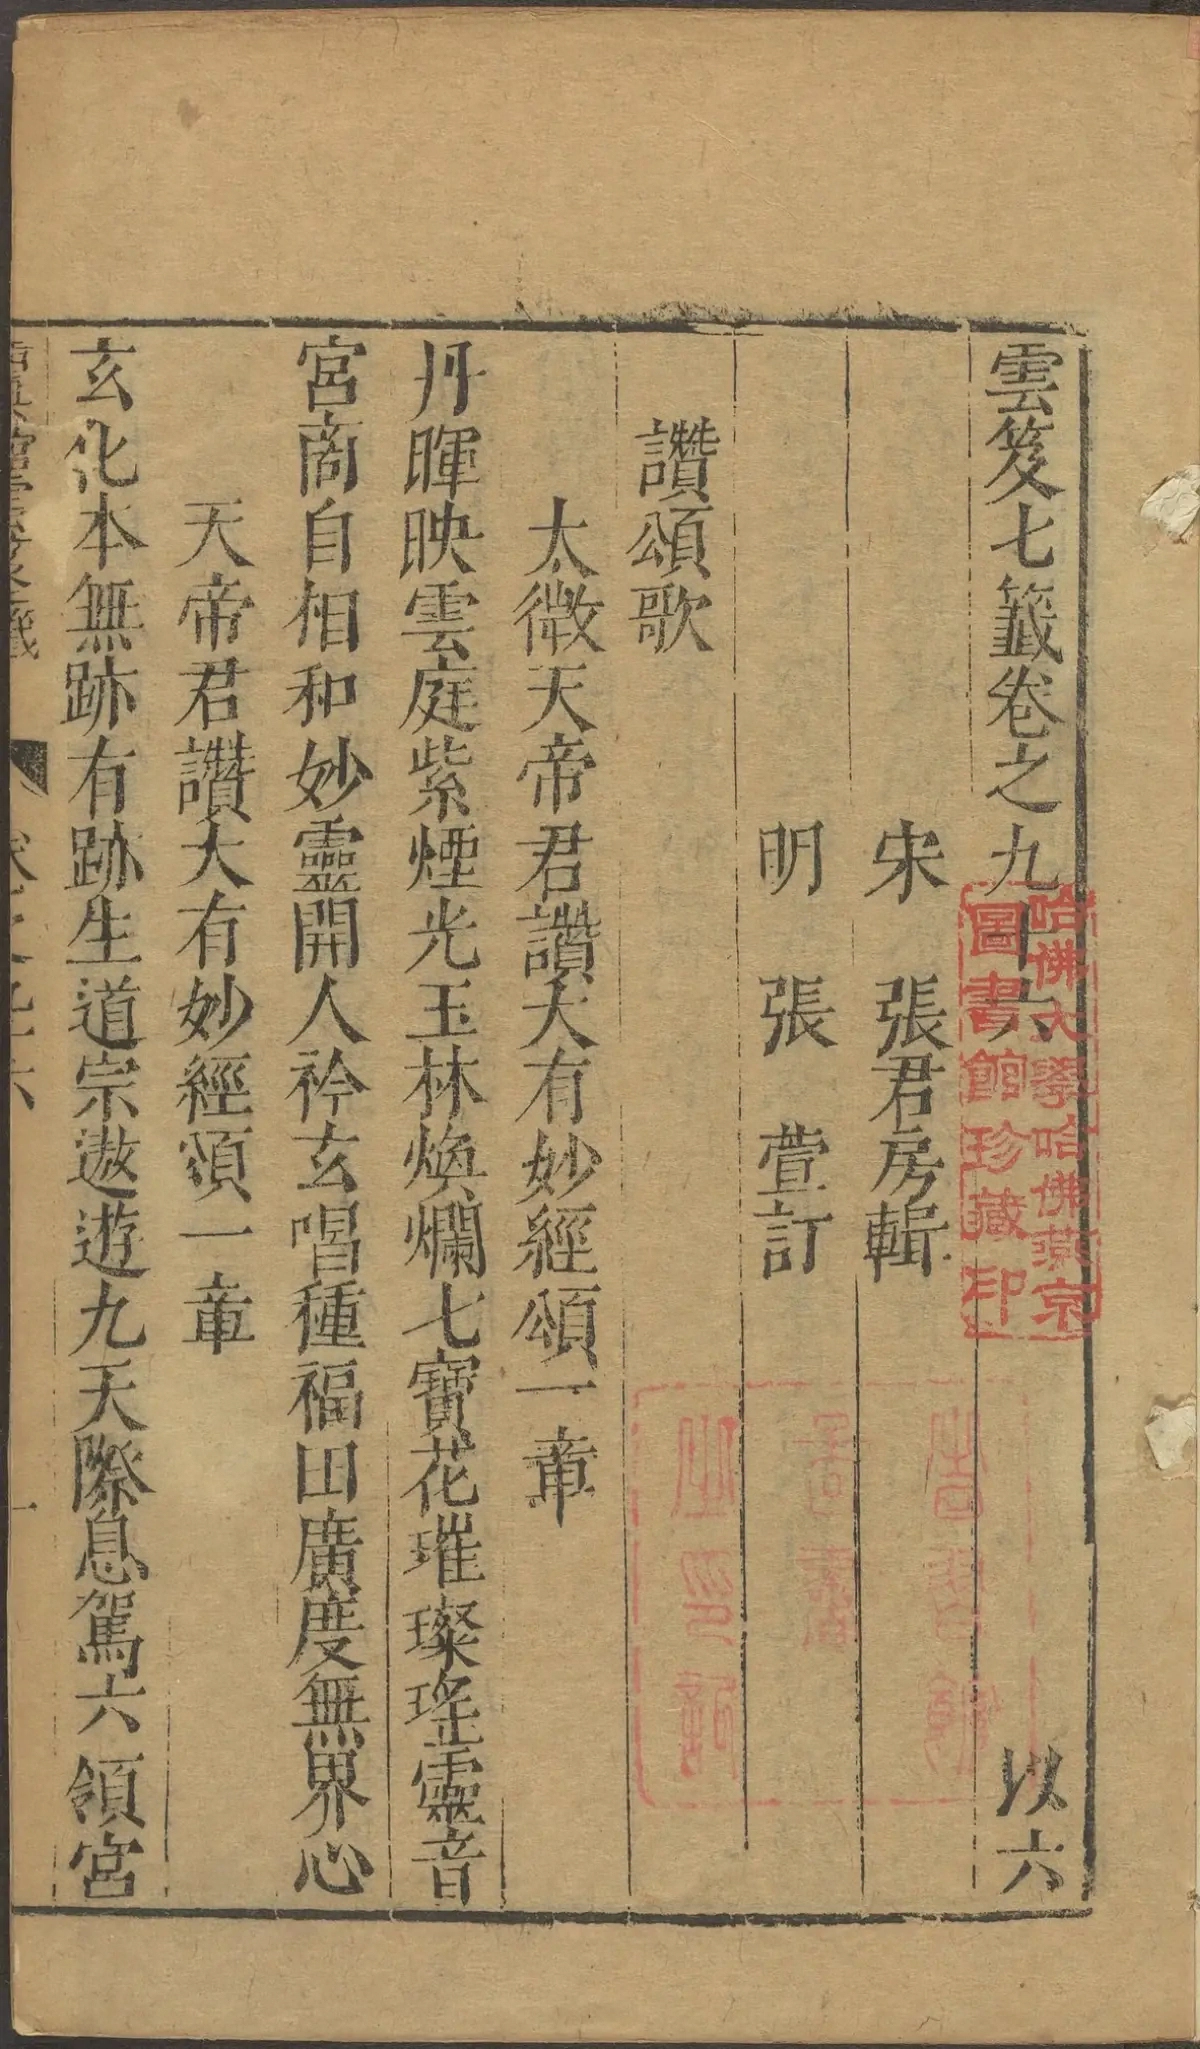 雲笈七籤卷之九十六 以六
宋 張君房輯
明 張 萱訂
讚頌歌
太微天帝君讚大有妙經頌一章
丹暉映雲庭紫煙光玉林煥爛七寶花璀璨瑤靈音
宮商自相和妙靈開人衿玄唱種福田廣度無界心
天帝君讚大有妙經頌一章
玄化本無跡有跡生道宗遨遊九天際息駕六領宮
卷之九十六 一
哈佛大學哈佛燕京
圖書館珍藏印